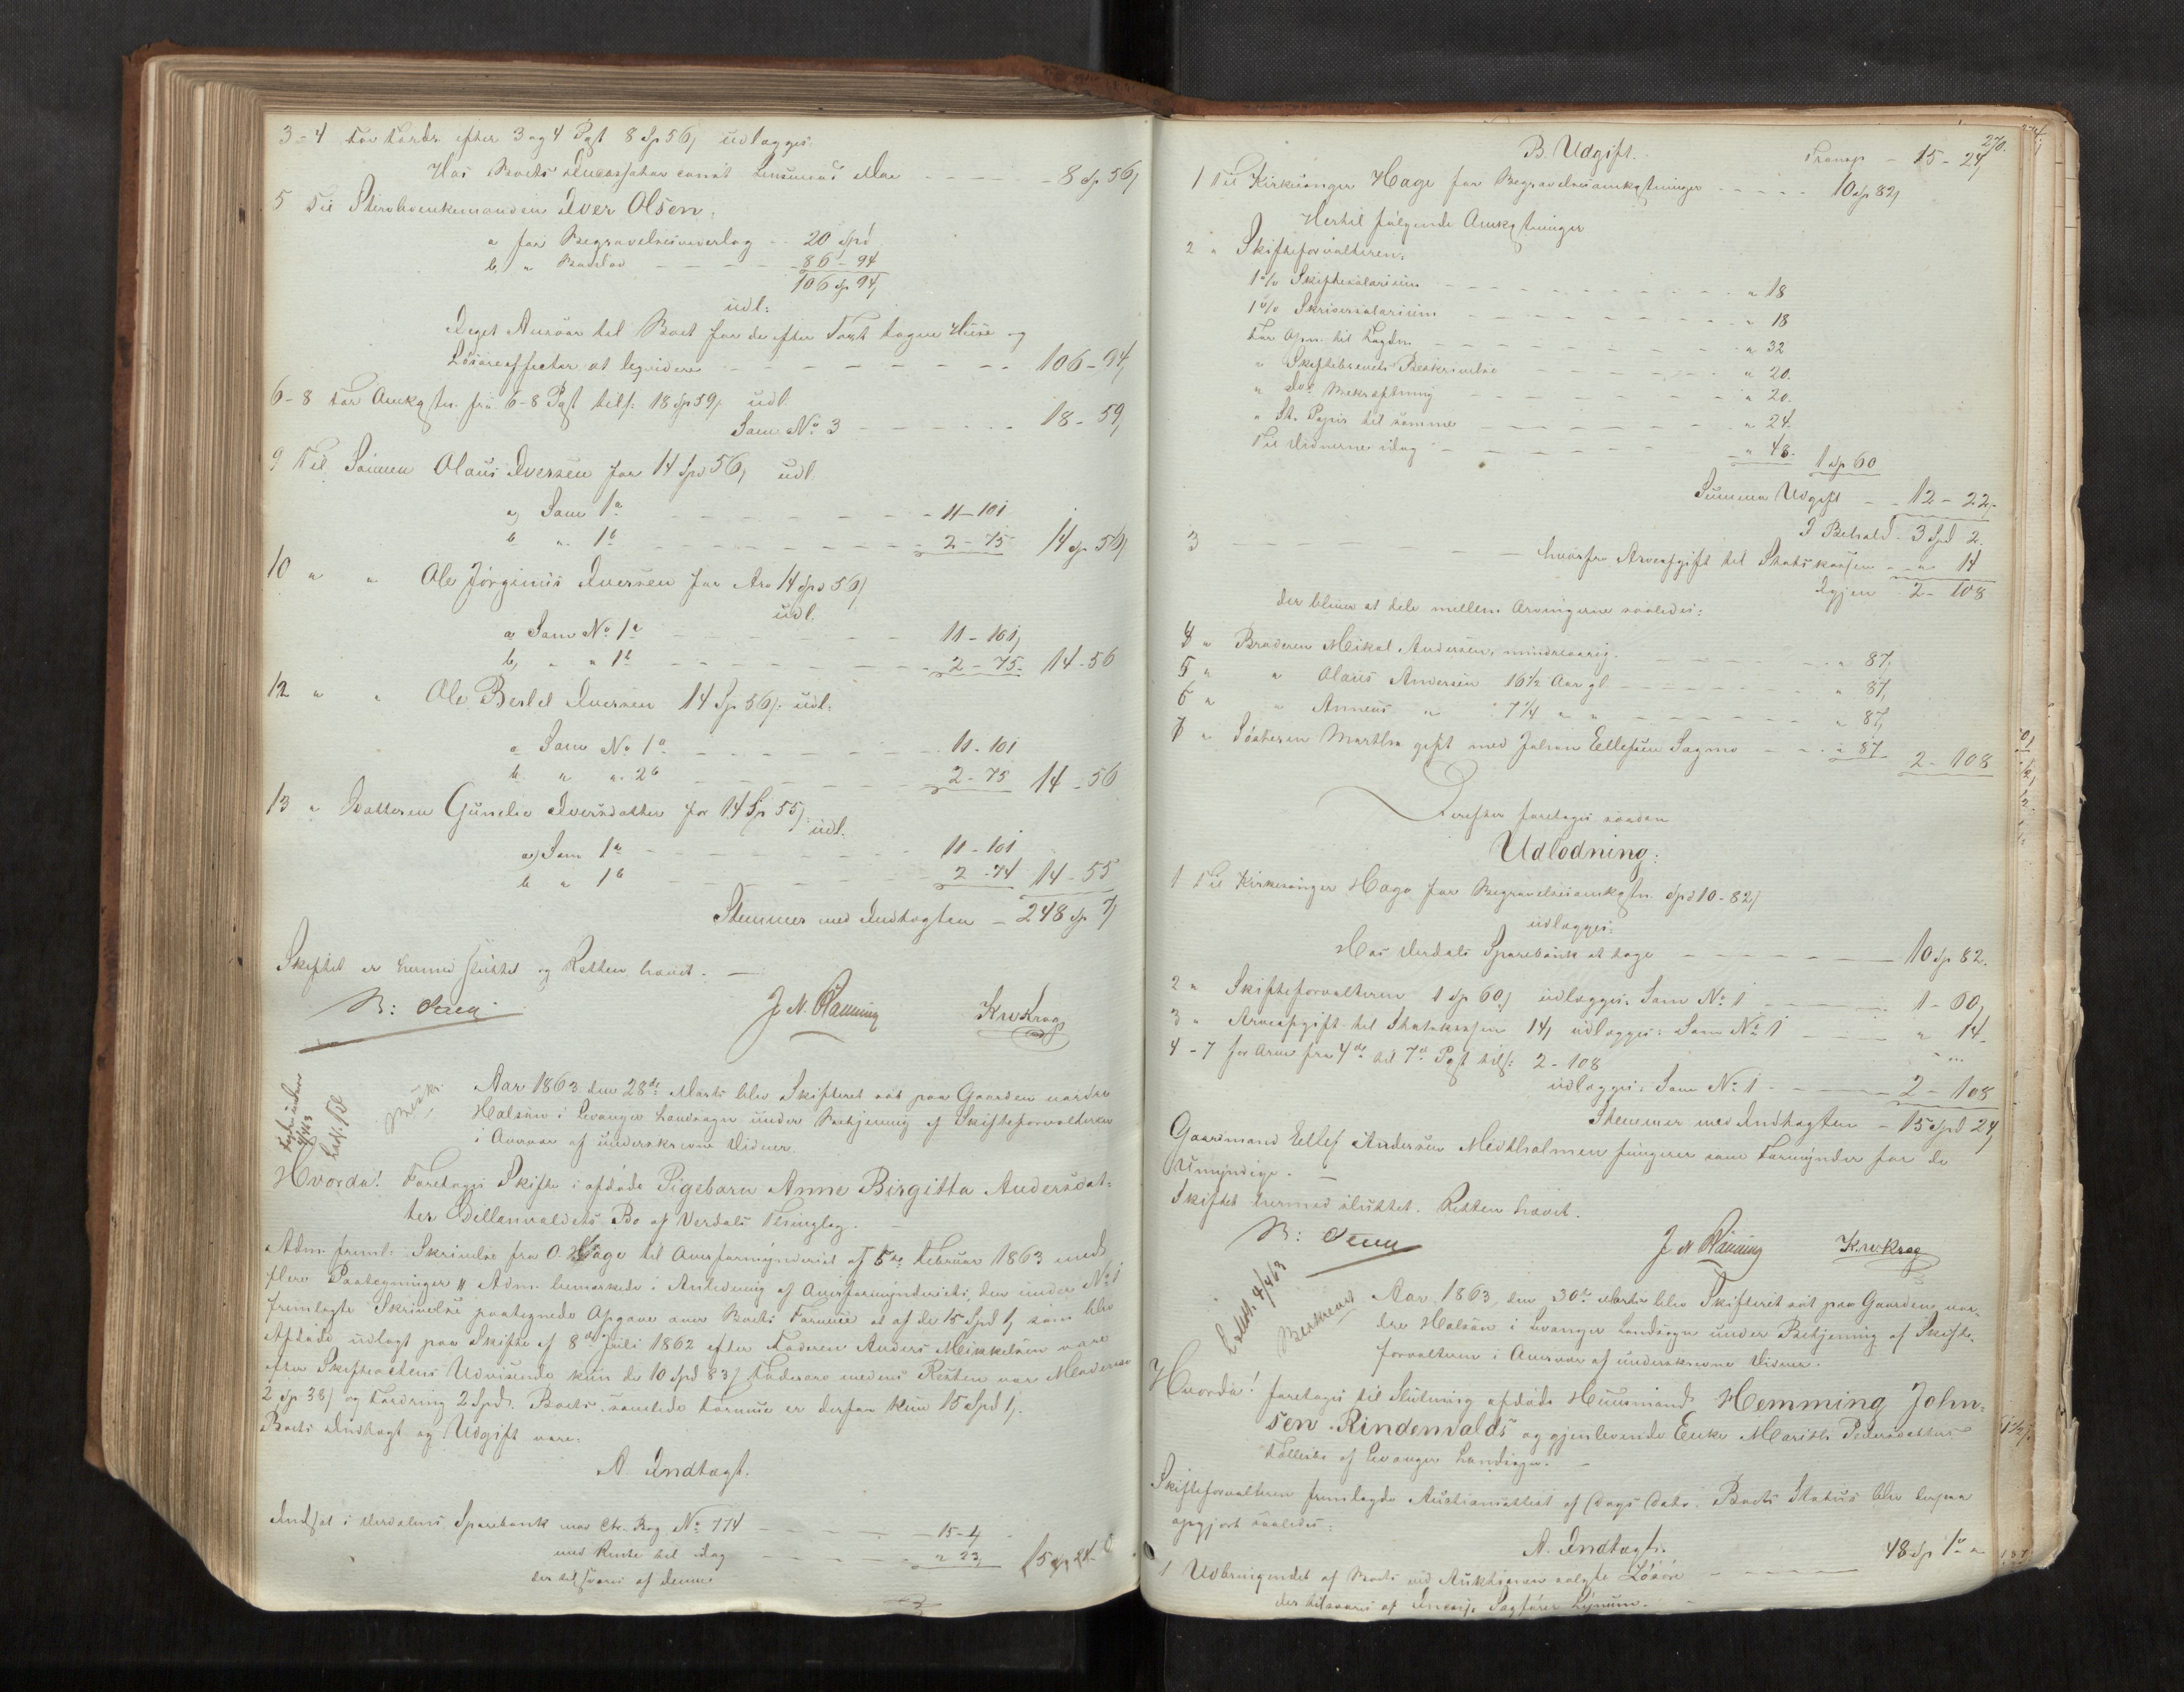 3-4 For Fordr. efter 3 og 4 Pgt 8 Sp 56 udlægges:
Hos Boets Incassator const Lensmand Moe - - - 8 Sp 56
5 Til Sterboenkemanden Iver Olsen:
a for Begravelsesverlag - 20 Spd
b, " Boeslod - - - 86 - 94
106 Sp 94
udl:
Eget Ansvar til Boet for de efter Taxt tagne Huse og
Løsøreeffecter at liqvidere - - - 106 - 94
6-8 For Omkostn. fra 6-8 Pgt tils: 18 Sp 59 udl.
Som No 3 - - - 18 - 59
9 Til Sønnen Olaus Iversen for 14 Spd 56, udl.
a) Som 1a - - - 11 - 101
b " 1b - - - 2 - 75 14 Sp 56
10 " " Ole Jørginus Iversen for Arv 14 Spd 56
udl.
a Som No 1a - - - 11 - 101
b, " " 1b - - - 2 - 75 14 - 56
12 " " Ole Berlet Iversen 14 Sp 56 udl:
a Som No 1a - - - 11 - 101
b. " " 2b - - - 2 - 75 14 - 56
13 " Datteren Gunelie Iversdatter for 14 Sp 55 udl.
a) Som 1a - - - 11 - 101
b " 1b - - - 2 - 74 14 - 55
Stemmer med Indtægten - 248 Sp 7
Skiftet er hermed sluttet og Retten hævet. —
J N Rønning KwKrog
Beskr.
Aar 1863 den 28de Marts blev Skifteret sat paa Gaarden nordre
Halsan i Levanger Landsogn under Betjening af Skifteforvalteren
i Overvær af underskrevne Vidner.
Hvorda! Foretoges Skifte i afdøde Pigebarn Anne Birgitta Andersdat-
ter Dellanvaldets Bo af Verdals Thinglag. —
Adm. freml: Skrivelse fra O. Hage til Overformynderiet af 5te Februar 1863 med
flere Paategninger " Adm. bemærkede i Anledning af Overformynderiets, den under No 1
fremlagte Skrivelse paategnede Opgave over Boets Formue at af de 15 Spd 1 som blev
Afdøde udlagt paa Skifte af 8de Juli 1862 efter Faderen Anders Mikkelsen vare
efter Skifteactens Udvisende kun de 10 Spd 83 Fædrearv medens Resten var Mødrearv
2 Sp 38 og Fordring 2 Spd. Boets samlede Formue er derfor kun 15 Spd 1.
Boets Indtægt og Udgift vare:
A. Indtægt.
Indsat i Verdalens Sparebank mod Ctr. Bog No 774 - - - 15 - 1
med Rente til idag - - - " 23, 15 Sp 24
der tilsvares af denne
270.
B. Udgift. Transp - 15 - 24
1 Til Kirkesanger Hage for Begravelsesomkostninger - - - 10 Sp 82
Hertil følgende Omkostninger
2 " Skifteforvalteren:
1% Skiftesalarium - - - " 18
1% Skriversalarium - - - " 18
For Opn. til Lagdn - - - " 32
" Skiftebrevets Beskrivelse - - - " 20.
" Do Bekræftning - - - " 20.
" St. Papir til samme - - - " 24.
Til Vidnerne idag - - - " 48. 1 Sp 60
Summa Udgift - - 12 - 22
I Behold. 3 Spd 2.
3 - - - hvorfra Arveafgift til Statskassen - - " 14
Igjen 2 - 108
der bliver at dele mellem Arvingerne saaledes:
4 " Broderen Mikal Andersen, mindreaarig. - - - " 87,
5 " " Olaus Andersen 16½ Aar gl. - - - " 87,
6 " " Anneus " 7¼ " " - - - " 87,
7 " Søsteren Martha gift med Johan Ellefsen Sagmo - - - " 87. 2 - 108
Derefter foretoges saadan
Udlodning:
1 Til Kirkesanger Hage for Begravelsesomkostn. Spd 10-82
udlægges:
Hos Verdals Sparebank at tage - - - 10 Sp 82.
2 " Skifteforvalteren 1 Sp 60 udlægges: Som No 1 - - - 1 - 60
3 " Arveafgift til Statskassen 14, udlægges: Som No 1 - - - " 14.
4-7 for Arven fra 4de til 7de Pgt tils: 2 - 108
udlægges: Som No 1 - - - 2 - 108
Stemmer med Indtægten - 15 Spd 24
Gaardmand Ellef Andersen Midtholmen fungerer som Formynder for de
Umyndige. —
Skiftet hermed sluttet. Retten hævet.
J N Rønning KwKrog
Beskrevet
Aar 1863, den 30te Marts blev Skifteret sat paa Gaarden nor-
dre Halsan i Levanger Landsogn under Betjening af Skifte-
forvalteren i Overvær af underskrevne Vidner.
Hvorda! foretoges til Slutning afdøde Huusmand Hemming John-
sen Rindenvalds og gjenlevende Enke Marith Pedersdatters
Fællesbo af Levanger Landsogn. —
Skifteforvalteren fremlagde Auctionsattest af Dags Dato. Boets Status blev derpaa
opgjort saaledes:
A. Indtægt.
1 Udbringendet af Boets ved Auktionen solgte Løsøre - - - 48 Sp 1 "
der tilsvares af Sagfører Lynum. —